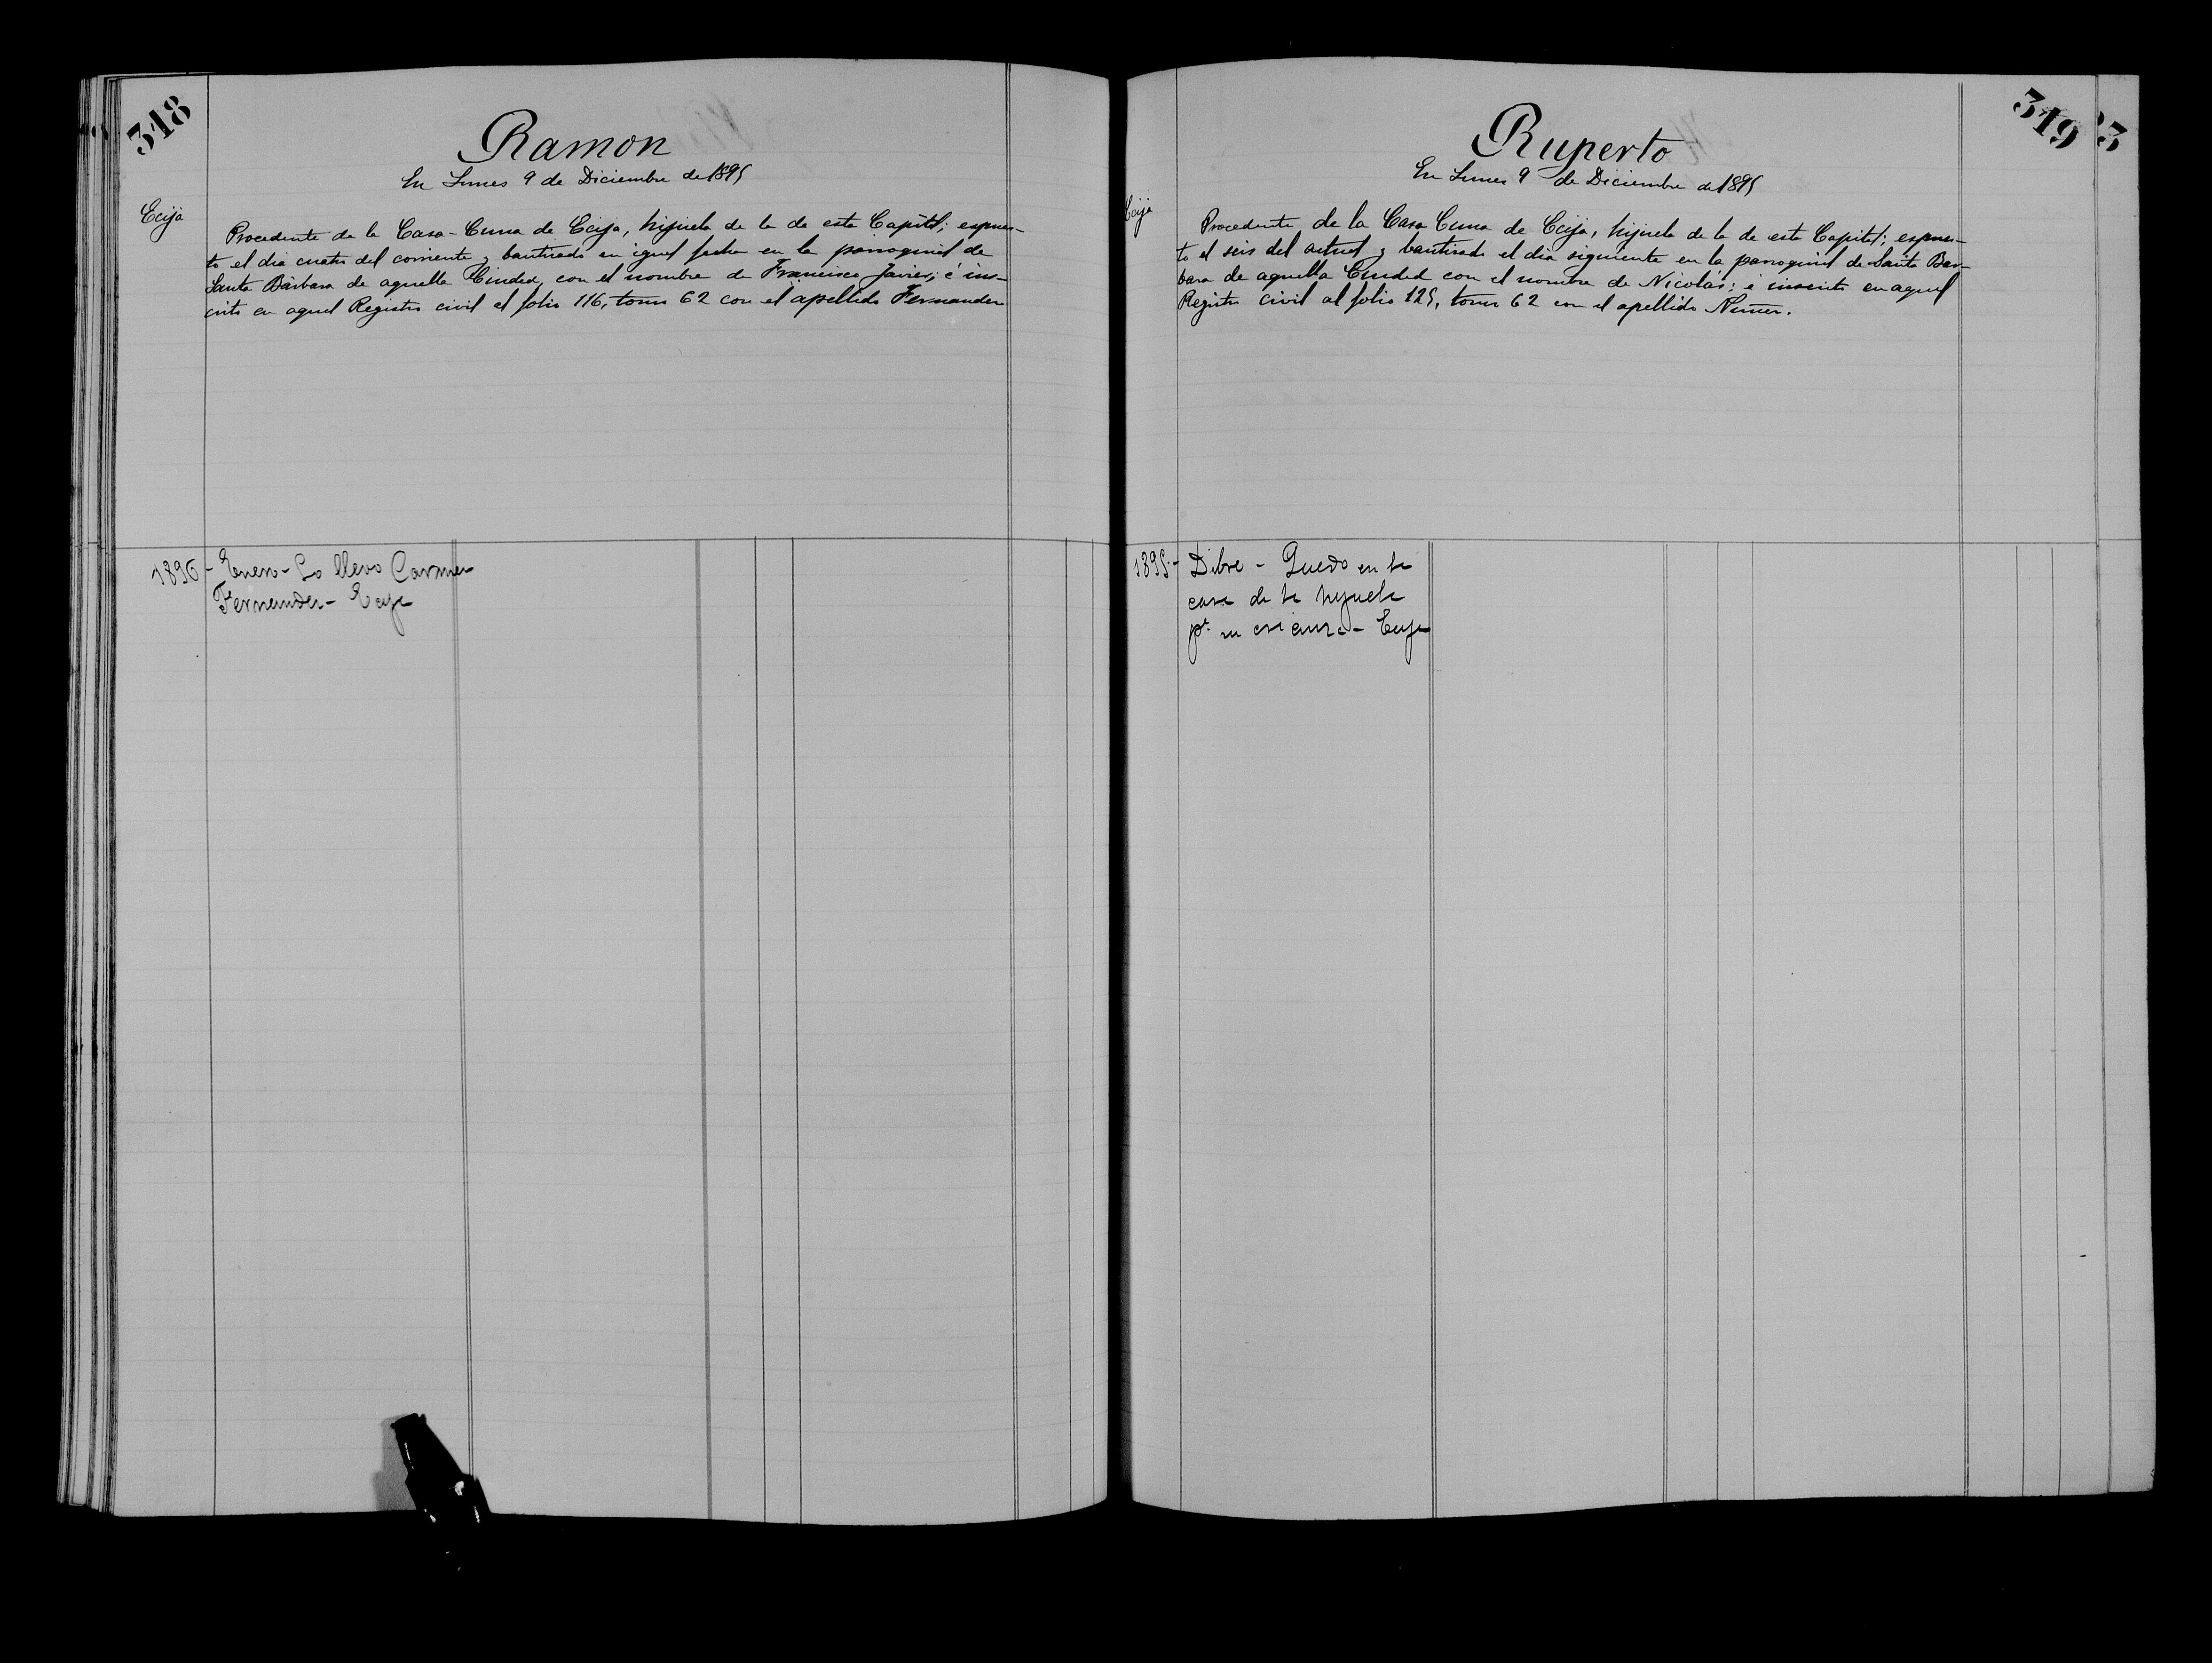 318
Ramon
En Lunes 9 de Diciembre de 1895
Ecija
Procedente de la Casa-Cuna de Ecija, hijuela de la de esta Capital; espues-
to el dia cuatro del corriente y bautizado en igual fecha en la parroquial de
Santa Bárbara de aquella Ciudad, con el nombre de Francisco Javier; é ins-
crito en aquel Registro civil al folio 116, tomo 62 con el apellido Fernandez
1896 - Enero - Lo llevo Carmen
Fernandez - Ecija
319
Ruperto
En Lunes 9 de Diciembre de 1895
Ecija
Procedente de la Casa Cuna de Ecija, hijuela de la de esta Capital; espues-
to el seis del actual y bautizado el dia siguiente en la parroquial de Santa Bar-
bara de aquella Ciudad con el nombre de Nicolás; é inscrito en aquel
Registro civil al folio 125, tomo 62 con el apellido Nuñez.
1895 - Dibre - Quedo en la
casa de la hijuela
pa. su crianza - Ecija